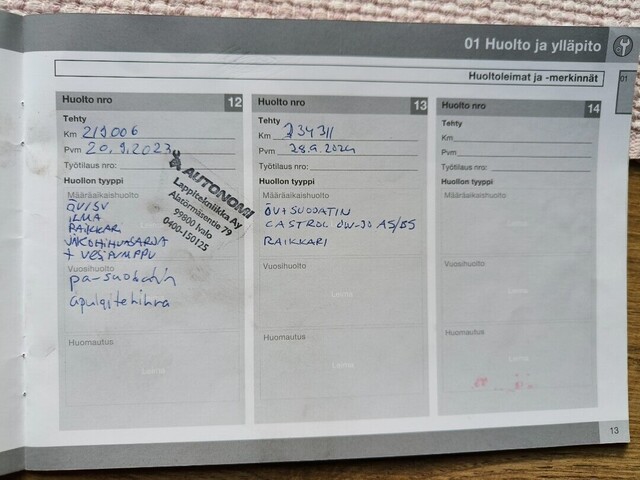 01 Huolto ja ylläpito
01
Huoltoleimat ja -merkinnät
Huolto nro 12
Tehty
Km 219006
Pvm 20.9.2023
Työtilaus nro:
Huollon tyyppi
Määräaikaishuolto
ÖV/SV
ILMA
RAIKKARI
JAKOHIHNASARJA
+ VESIPUMPPU
pa-suodatin
apulaitehihna
Vuosihuolto
Huomautus
Leima
AUTONOMI
Lappitekniikka Ay
Alastörmäsentie 79
99800 Ivalo
0400-150125
Huolto nro 13
Tehty
Km 234311
Pvm 28.9.2024
Työtilaus nro:
Huollon tyyppi
Määräaikaishuolto
ÖV+SUODATIN
CASTROL 0W-30 A5/B5
RAIKKARI
Vuosihuolto
Leima
Huomautus
Leima
Huolto nro 14
Tehty
Km
Pvm
Työtilaus nro:
Huollon tyyppi
Määräaikaishuolto
Vuosihuolto
Leima
Huomautus
Leima
13